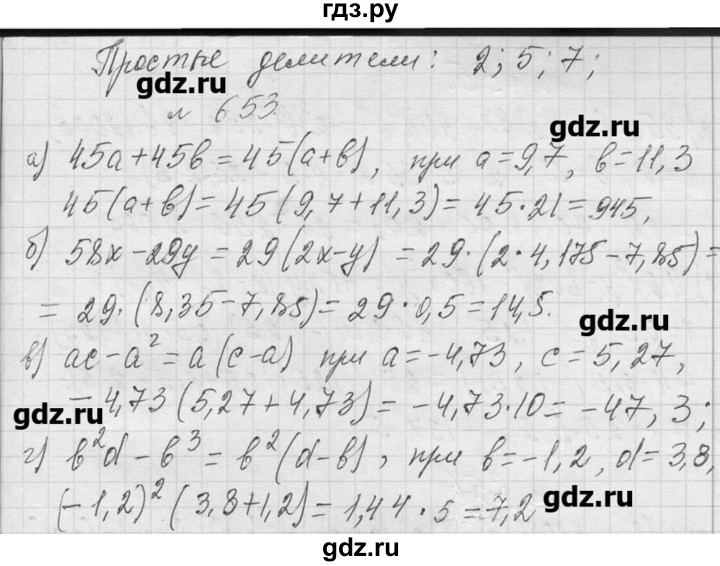 гдз.ру
Простые делители: 2; 5; 7;
gdz.ru
№ 653.
gdz.ru
а) 45a+45b=45(a+b), при a=9,7, b=11,3
45(a+b)=45(9,7+11,3)=45·21=945,
б) 58x-29y=29(2x-y)=29·(2·4,175-7,85)=
=29·(8,35-7,85)=29·0,5=14,5.
gdz.ru
в) ac-a²=a(c-a) при a=-4,73, c=5,27,
-4,73(5,27+4,73)=-4,73·10=-47,3;
gdz.ru
г) b²d-b³=b²(d-b), при b=-1,2, d=3,8,
(-1,2)²(3,8+1,2)=1,44·5=7,2
gdz.ru
gdz.ru